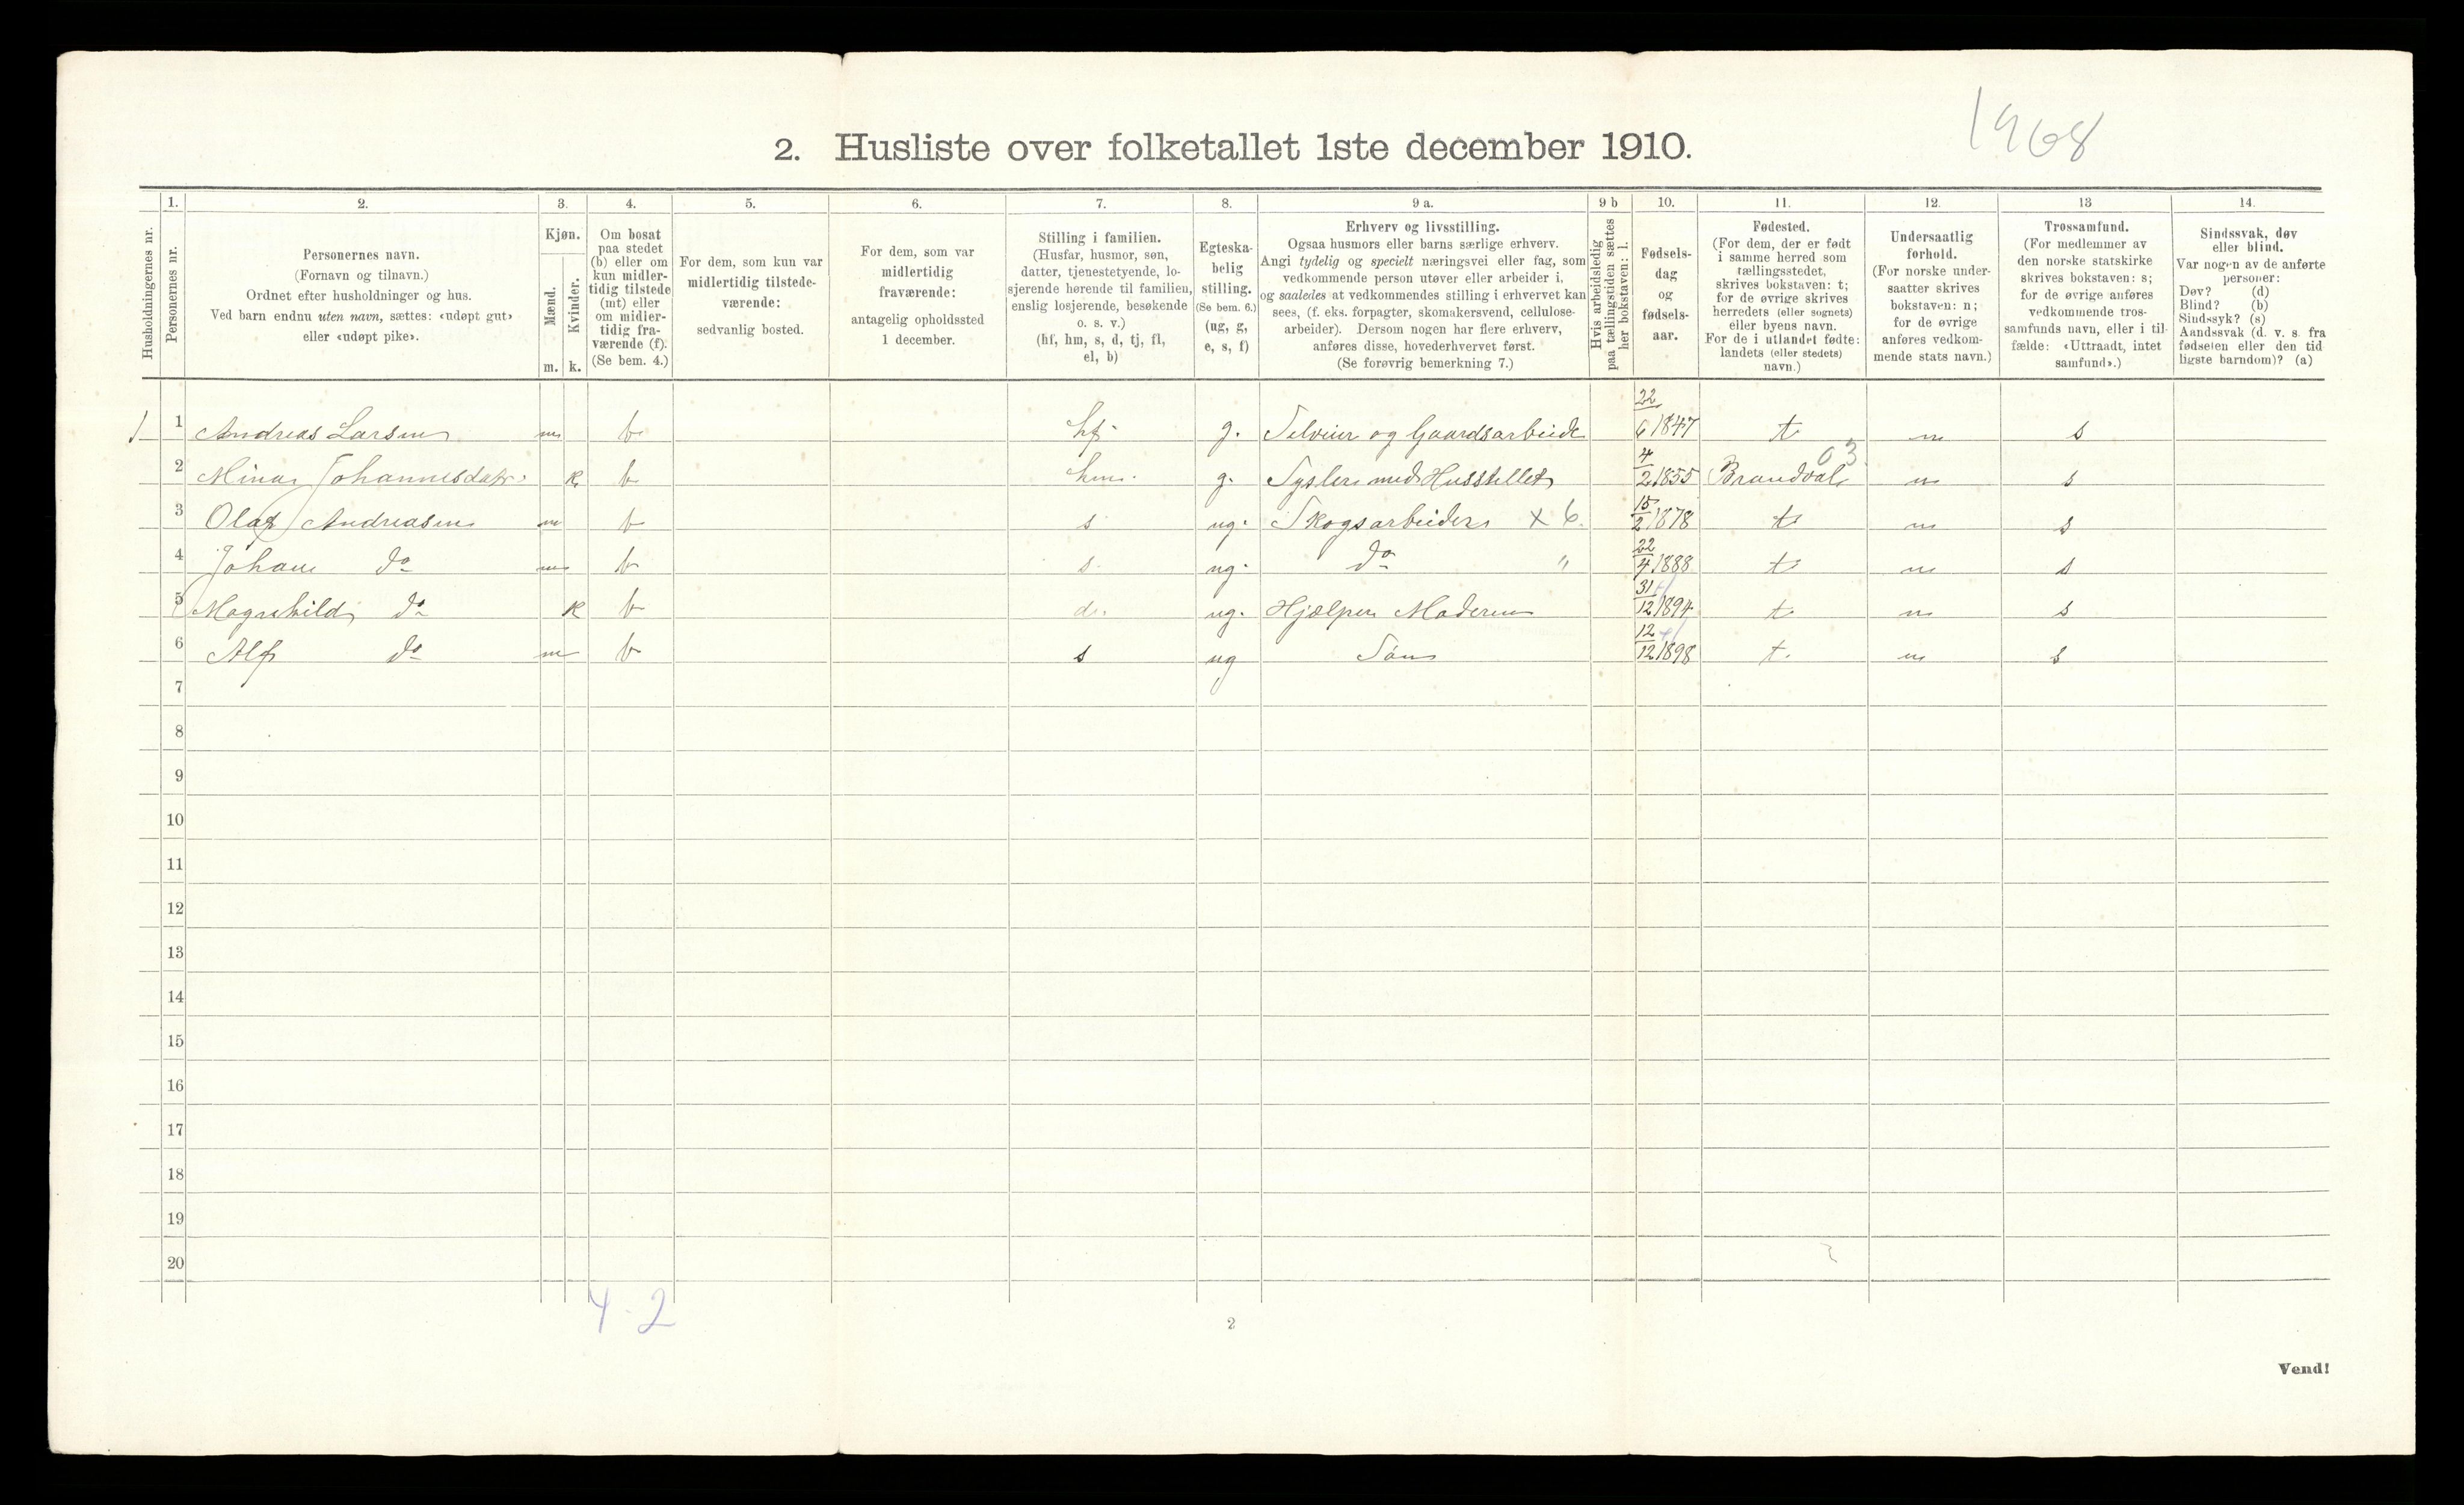 1968
2. Husliste over folketallet 1ste december 1910.
Husholdningernes nr.
1.
Personernes nr.
2.
Personernes navn.
(Fornavn og tilnavn.)
Ordnet efter husholdninger og hus.
Ved barn endnu uten navn, sættes: «udøpt gut»
eller «udøpt pike».
3.
Kjøn.
Mænd.
Kvinder.
m. k.
4.
Om bosat
paa stedet
(b) eller om
kun midler-
tidig tilstede
(mt) eller
om midler-
tidig fra-
værende (f).
(Se bem. 4.)
5.
For dem, som kun var
midlertidig tilstede-
værende:
sedvanlig bosted.
6.
For dem, som var
midlertidig
fraværende:
antagelig opholdssted
1 december.
7.
Stilling i familien.
(Husfar, husmor, søn,
datter, tjenestetyende, lo-
sjerende hørende til familien,
enslig losjerende, besøkende
o. s. v.)
(hf, hm, s, d, tj, fl,
el, b)
8.
Egteska-
belig
stilling.
(Se bem. 6.)
(ug, g,
e, s, f)
9 a.
Erhverv og livsstilling.
Ogsaa husmors eller barns særlige erhverv.
Angi tydelig og specielt næringsvei eller fag, som
vedkommende person utøver eller arbeider i,
og saaledes at vedkommendes stilling i erhvervet kan
sees, (f. eks. forpagter, skomakersvend, cellulose-
arbeider). Dersom nogen har flere erhverv,
anføres disse, hovederhvervet først.
(Se forøvrig bemerkning 7.)
9 b
Hvis arbeidsledig
paa tællingstiden sættes
her bokstaven: l.
10.
Fødsels-
dag
og
fødsels-
aar.
11.
Fødested.
(For dem, der er født
i samme herred som
tællingsstedet,
skrives bokstaven: t;
for de øvrige skrives
herredets (eller sognets)
eller byens navn.
For de i utlandet fødte:
landets (eller stedets)
navn.)
12.
Undersaatlig
forhold.
(For norske under-
saatter skrives
bokstaven: n;
for de øvrige
anføres vedkom-
mende stats navn.)
13
Trossamfund.
(For medlemmer av
den norske statskirke
skrives bokstaven: s;
for de øvrige anføres
vedkommende tros-
samfunds navn, eller i til-
fælde: «Uttraadt, intet
samfund».)
14.
Sindssvak, døv
eller blind.
Var nogen av de anførte
personer:
Døv? (d)
Blind? (b)
Sindssyk? (s)
Aandssvak (d. v. s. fra
fødselen eller den tid
ligste barndom)? (a)
1 1 Andreas Larsen m b hf. g. Selveier og Gaardsarbeide 22/6 1847 t n s
03
2 Mina Johannesdatr. k b hm. g. Sysler med Husstellet 4/2 1855 Brandval n s
3 Olaf Andreasen m b s ug. Skogsarbeider x 6. 15/2 1878 t n s
4 Johan do m b s. ug. do " 22/4 1888 t n s
5 Magnhild do k b d. ug. Hjælper Moderen 31/12 1894 t n s
6 Alf do m b s ug Søn 12/12 1898 t. n s
7
8
9
10
11
12
13
14
15
16
17
18
19
20
4 - 2
2
Vend!